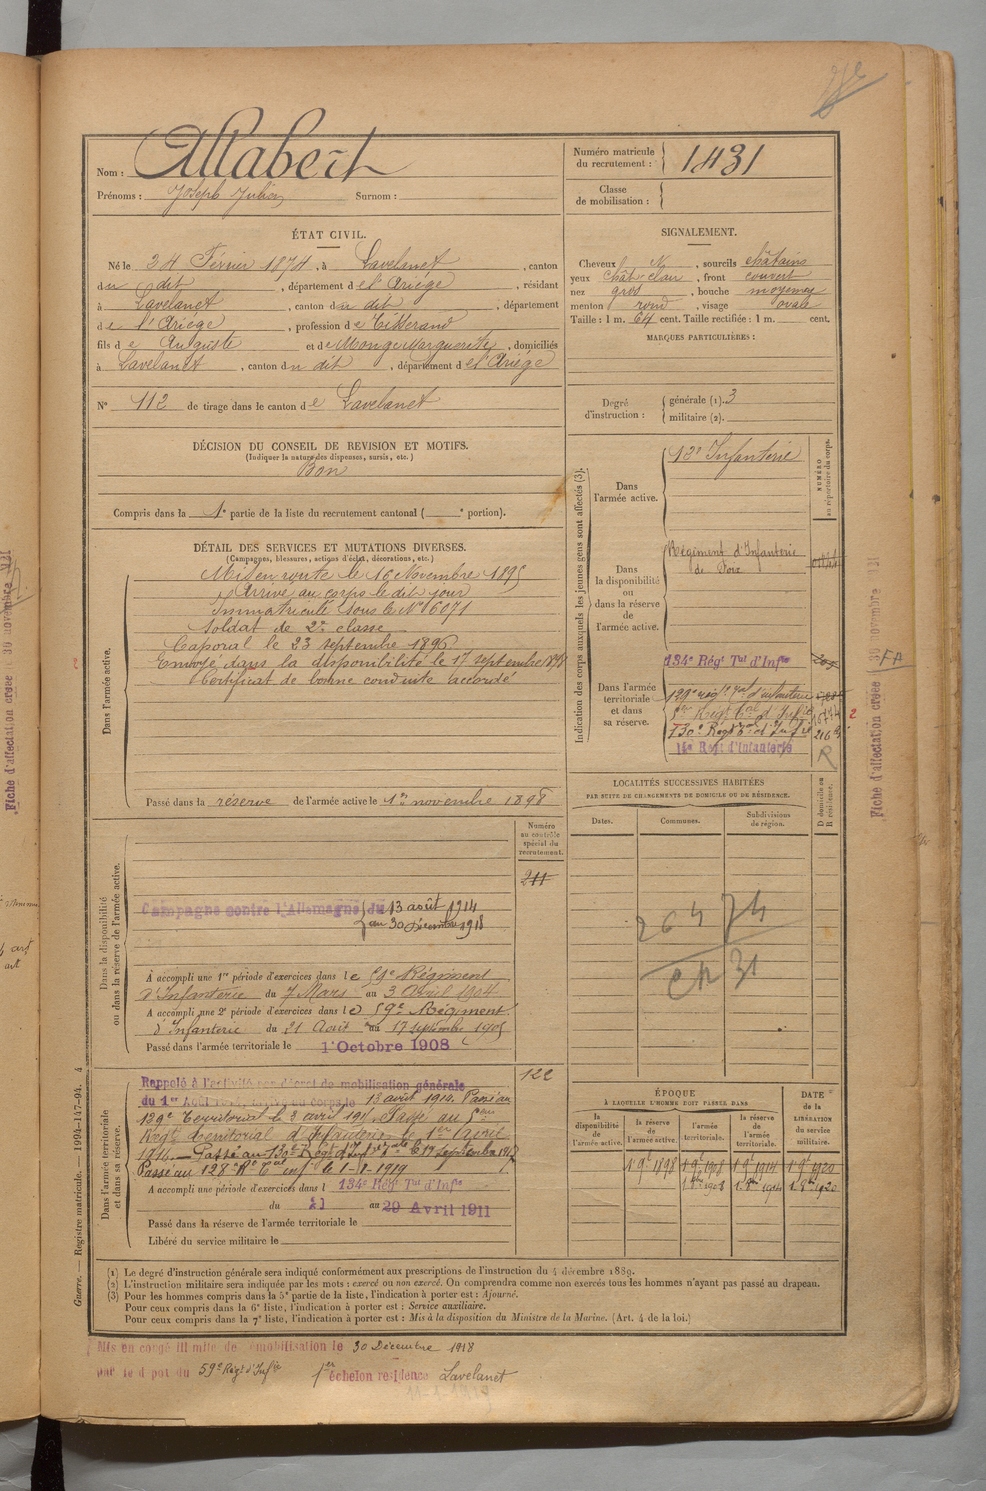 Nom : Allabert
Prénoms : Joseph Julien Surnom :
Numéro matricule du recrutement : 1431
Classe de mobilisation :
ÉTAT CIVIL.
Né le 24 Février 1874, à Lavelanet, canton
du dit, département de l'Ariège, résidant
à Lavelanet, canton du dit, département
de l'Ariège, profession de Tisserand
fils de Auguste et de Monge Marguerite, domiciliés
à Lavelanet, canton du dit, département de l'Ariège
N° 112 de tirage dans le canton de Lavelanet
SIGNALEMENT.
Cheveux N, sourcils châtains
yeux chât. clair, front couvert
nez gros, bouche moyenne
menton rond, visage ovale
Taille : 1 m. 64 cent. Taille rectifiée : 1 m. cent.
MARQUES PARTICULIÈRES :
Degré d'instruction : générale (1). 3
militaire (2).
DÉCISION DU CONSEIL DE REVISION ET MOTIFS.
(Indiquer la nature des dispenses, sursis, etc.)
Bon
Compris dans la 1e partie de la liste du recrutement cantonal ( e portion).
DÉTAIL DES SERVICES ET MUTATIONS DIVERSES.
(Campagnes, blessures, actions d'éclat, décorations, etc.)
Dans l'armée active.
Mis en route le 16 Novembre 1895
Arrivé au corps le dit jour
Immatriculé sous le N° 6071
Soldat de 2e classe
Caporal le 23 septembre 1896
Envoyé dans la disponibilité le 17 septembre 1898
Certificat de bonne conduite accordé
Passé dans la réserve de l'armée active le 1er novembre 1898
Indication des corps auxquels les jeunes gens sont affectés (3).
NUMÉRO au répertoire du corps.
Dans l'armée active.
12e Infanterie
Dans la disponibilité ou dans la réserve de l'armée active.
Régiment d'Infanterie
de Foix
Dans l'armée territoriale et dans sa réserve.
134e Régt Tal d'Infie
129e Régt Tal d'infanterie
5er Régt Tal d'Infie
130e Régt Tal d'Infie
14e Regt d'Infanterie
R
LOCALITÉS SUCCESSIVES HABITÉES
PAR SUITE DE CHANGEMENTS DE DOMICILE OU DE RÉSIDENCE.
D domicile ou R résidence.
Dates. Communes. Subdivisions de région.
Dans la disponibilité ou dans la réserve de l'armée active.
Numéro au contrôle spécial du recrutement.
211
Campagne contre l'Allemagne du 13 août 1914
au 30 Décembre 1918
À accompli une 1re période d'exercices dans le 59e Régiment
d'Infanterie du 7 Mars au 3 Avril 1904
A accompli une 2e période d'exercices dans le 59e Régiment
d'Infanterie du 21 Août au 17 septembre 1905
Passé dans l'armée territoriale le 1er Octobre 1908
Dans l'armée territoriale et dans sa réserve.
122
Rappelé à l'activité par décret de mobilisation générale
du 1er Août 1914, arrivé au corps le 13 août 1914. Passé au
129e Territorial le 3 avril Passé au 5eme
Régt territorial d'Infanterie 1er avril
Passé au 130e Régt d'Inf Tale le 19 septembre 1917
Passé au 128e R Tal inf le 1-1-1919
A accompli une période d'exercices dans l 134e Régt Tal d'Infie
du 21 au 29 Avril 1911
Passé dans la réserve de l'armée territoriale le
Libéré du service militaire le
ÉPOQUE
À LAQUELLE L'HOMME DOIT PASSER DANS
la disponibilité de l'armée active.
la réserve de l'armée active.
l'armée territoriale.
la réserve de l'armée territoriale.
DATE de la LIBÉRATION du service militaire.
1 9e 1898 1 9e 1908 1 9e 1914 1 9e 1920
(1) Le degré d'instruction générale sera indiqué conformément aux prescriptions de l'instruction du 4 décembre 1889.
(2) L'instruction militaire sera indiquée par les mots : exercé ou non exercé. On comprendra comme non exercés tous les hommes n'ayant pas passé au drapeau.
(3) Pour les hommes compris dans la 5e partie de la liste, l'indication à porter est : Ajourné.
Pour ceux compris dans la 6e liste, l'indication à porter est : Service auxiliaire.
Pour ceux compris dans la 7e liste, l'indication à porter est : Mis à la disposition du Ministre de la Marine. (Art. 4 de la loi.)
Guerre. — Registre matricule. — 1994-147-94. 4
Mis en congé illimité de démobilisation le 30 Décembre 1918
par le dépot du 59e Régt d'Infie 1er échelon residence Lavelanet
Fiche d'affectation créée 30 novembre
FA